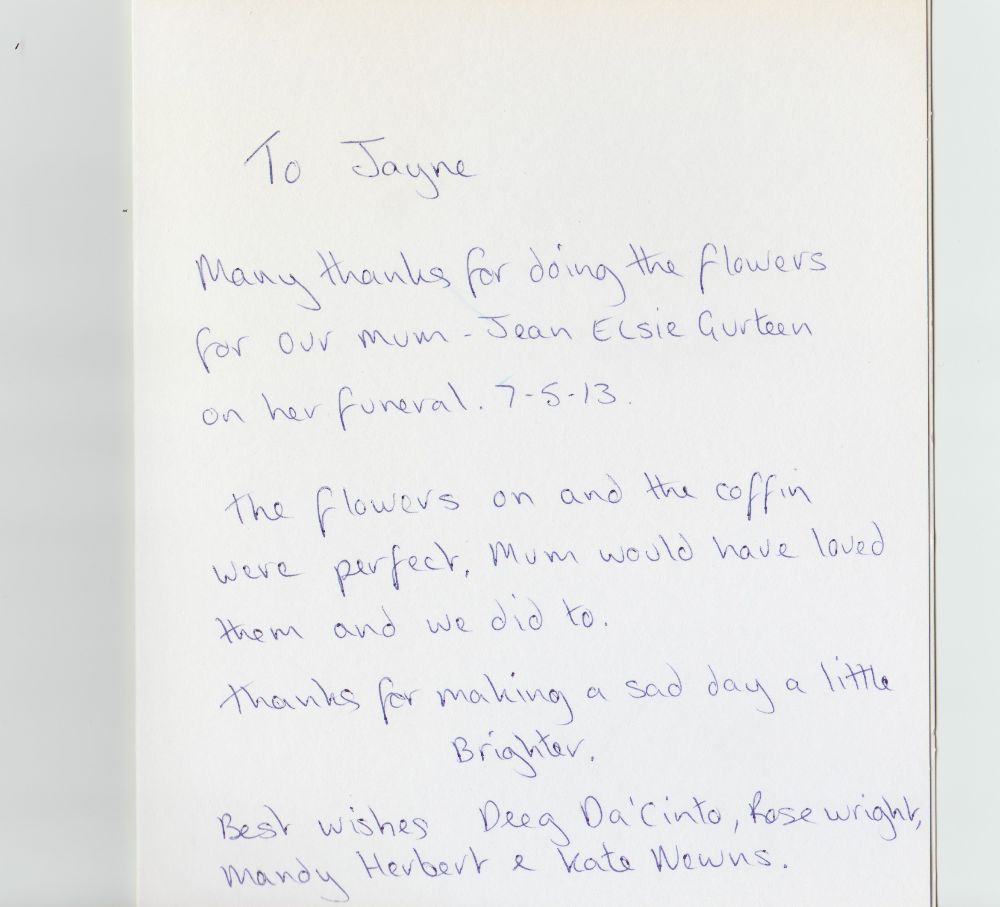 To Jayne
Many thanks for doing the flowers
for our mum - Jean Elsie Gurteen
on her funeral. 7-5-13.
the flowers on and the coffin
were perfect, Mum would have loved
them and we did to.
thanks for making a sad day a little
Brighter.
Best wishes Deeg Da'Cinto, Rose wright,
Mandy Herbert & Kate Newns.